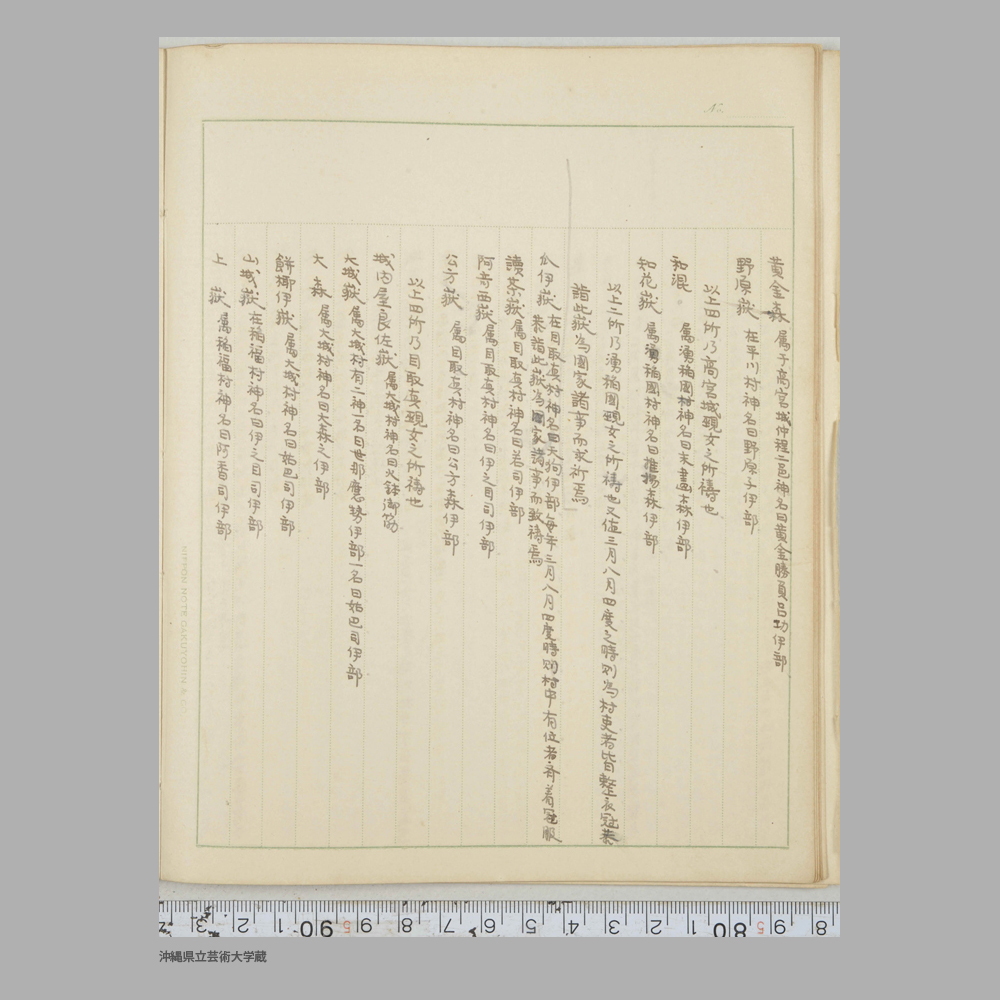 黄金森 属于高宮城仲程二邑神名曰黄金勝負呂功伊部
野原嶽 在平川村神名曰野原子伊部
以上四所乃高宮城覡女之所禱也
和混 属湧稲國村神名曰末盡森伊部
知花嶽 属湧稲國村神名曰推揚森伊部
以上二所乃湧稲國覡女之所禱也又値三月八月四度之時則為村吏者皆整衣冠恭
詣此嶽為國家諸事而求祈焉
瓜伊嶽 在目取真村神名曰天狗伊部毎年三月八月四度時則村中有位者齊着冠服
恭詣此嶽為國家諸事而致禱焉
讀茶嶽 属目取真村神名曰若司伊部
阿嘉西嶽 属目取真村神名曰伊之司司伊部
公方嶽 属目取真村神名曰公方森伊部
以上四所乃目取真覡女之所禱也
城内屋良佐嶽 属大城村神名曰火鉢御筋
大城嶽 属大城村有二神一名曰世那應勢伊部一名曰始巴司伊部
大森 属大城村神名曰大森之伊部
餅椰伊嶽 属大城村神名曰始巴司伊部
山城嶽 在稲福村神名曰伊之目司伊部
上嶽 属稲福村神名曰阿香司伊部
No.
NIPPON NOTE GAKUYOHIN & CO
3 2 1 90 5 9 8 7 6 5 4 3 2 1 80 5 9 8
沖縄県立芸術大学蔵